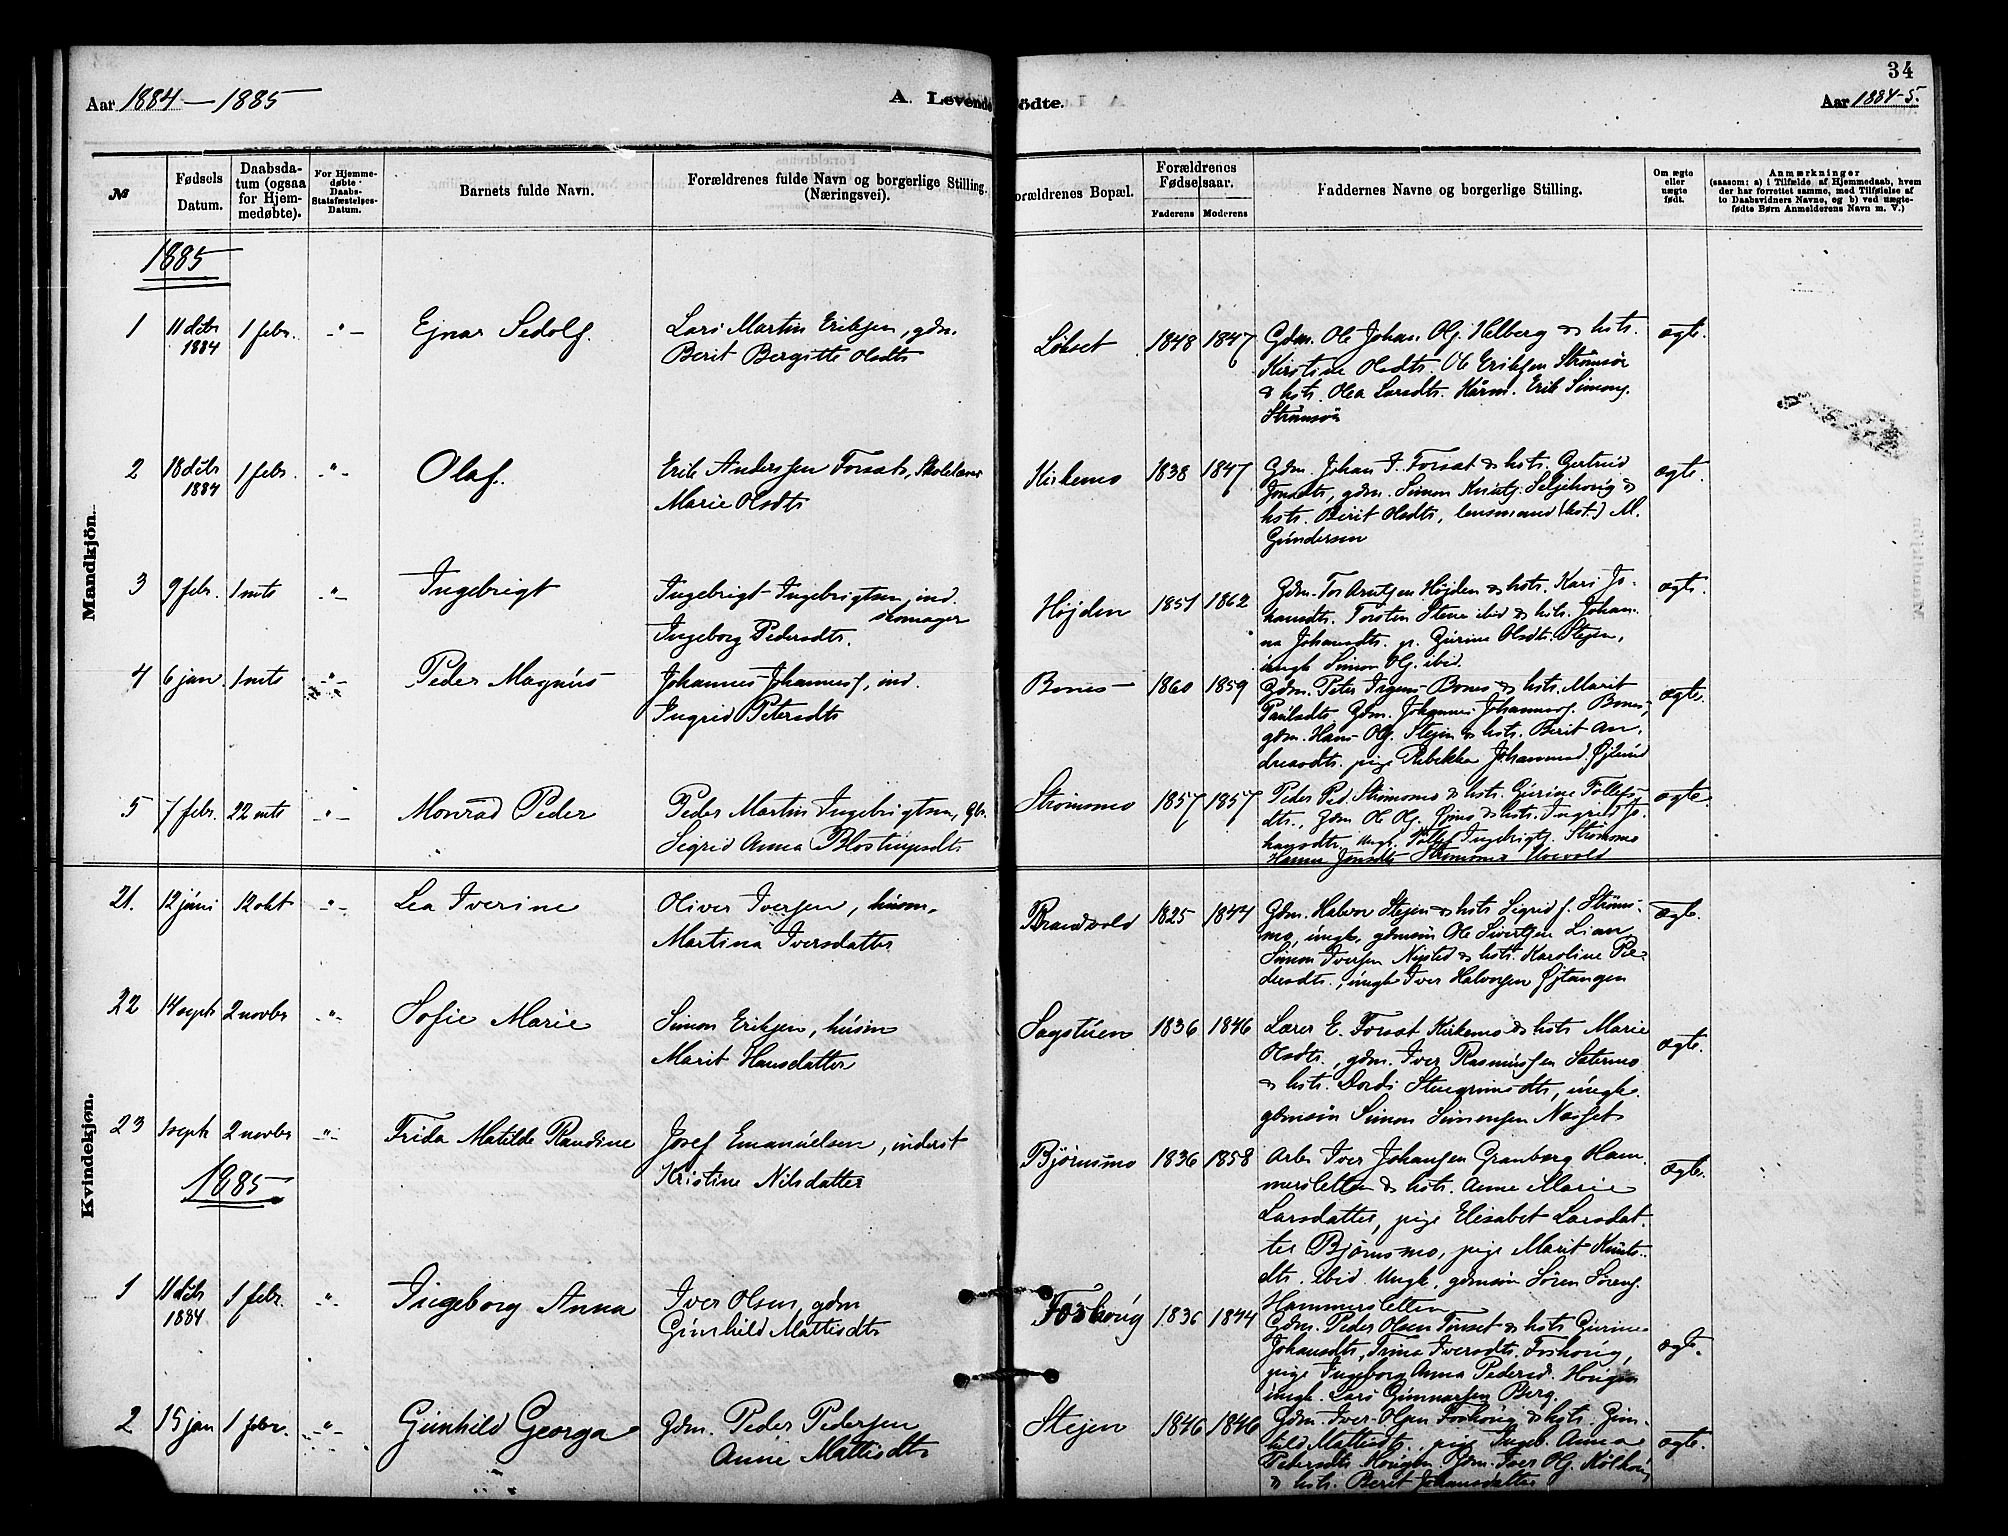 34
Aar 1884-1885
A. Levende
ødte.
Aar 1884-5.
№
Fødsels Datum.
Daabsda-
tum (ogsaa
for Hjem-
medøbte).
For Hjemme-
døbte
Daabs-
Stadfæstelses-
Datum.
Barnets fulde Navn.
Forældrenes fulde Navn og borgerlige Stilling.
(Næringsvei).
Forældrenes Bopæl.
Forældrenes
Fødselsaar.
Faderens
Moderens
Faddernes Navne og borgerlige Stilling.
Om ægte
eller
uægte
født.
Anmærkninger
(saasom: a) i Tilfælde af Hjemmedaab, hvem
der har forrettet samme, med Tilføielse af
to Daabsvidners Navne, og b) ved uægte-
fødte Børn Anmelderens Navn m. V.)
Mandkjön.
1885
1 11 debr 1884 1 febr. -"- Ejnar Sedolf.
Lars Martin Eriksen, gdm.
Berit Bergitte Olsdtr
Lökset 1848 1847
Gdm. Ole Johan Olsen Helberg & hstr.
Kirstine Olsdtr. Ole Eriksen Strømsør
& hstr. Olea Larsdtr. Kårm. Erik Simons.
Strömsör
ægte.
2 18 debr 1884 1 febr. -"- Olaf.
Erik Anderssen Forsat, Skolelærer
Marie Olsdtr
Kirkemo 1838 1847
Gdm. Johan J. Forsat & hstr. Gertrud
Jonsdtr, gdm. Simon Knuts. Seljehoug &
hstr. Berit Olsdtr, lensmand (kst.) M.
Gundersen
ægte.
3 9 febr. 1 mts -"- Ingebrigt
Ingebrigt Ingebrigtsen, ind.
skomager
Ingeborg Pedersdtr.
Højden 1851 1862
Gdm. Tor Arntsen Højden & hstr. Kari Jo-
hansdtr. Torsten Stene ibid & hstr. Johan-
na Johansdtr. p. Gurine Olsdtr. Stejen,
ungk Simon Ols. ibid.
ægte.
4 6 jan 1 mts -"- Peder Magnus
Johannes Johanness, ind.
Ingrid Petersdtr
Bones 1860 1859
Gdm. Peter Irgens Bones & hstr. Marit
Paulsdtr. Gdm. Johannes Johanness. Bones,
gdm. Hans Ols. Stejen & hstr. Berit An-
dreasdtr. pige Rebekka Johannesd. Øjlund
ægte.
5 7 febr. 22 mts -"- Monrad Peder
Peder Martin Ingebrigtsen, gbr.
Sigrid Anna
Strømsmo 1857 1857
Peder Ped. Strömsmo & hstr. Gurine Tollefs-
dtr., Gdm Ole Ols. Øjmo & hstr. Ingrid Jo-
hansdtr, ungk. Tollef Ingebrigts. Strömsmo
Hanna Jonsdtr Strömsmo
ægte
21. 12 juni 12 okt -"- Lea Iverine
Oliver Iversen, husm.
Martina Iversdatter
Brandvold 1825 1844
Gdm. Halvor Stejen & hstr Sigrid f. Ströms-
mo, ungk. gdmsön Ole Sivertsen Lian
Simon Iversen Nysted & hstr. Karoline Pe-
dersdtr., ungk Iver Halvorsen Øjtangen
ægte.
Kvindekjøn.
22 14 septr 2 novbr -"- Sofie Marie
Simon Eriksen, husm
Marit Hansdatter
Sagstuen 1836 1846
Lærer E. Forsat Kirkemo & hstr Marie
Olsdtr., gdm. Iver Rasmussen Sætermo
& hstr. Dordi Steengrimsdtr, ungk.
gdmsön Simon Simonsen Næsset
ægte.
23 1 septr 2 novbr -"- Frida Matilde Randine
Josef Emanuelsen, inderst
Kristine Nilsdatter
Bjørnsmo 1836 1858
Arb. Iver Johansen Granberg Ham-
mersletten & hstr. Anne Marie
Larsdatter, pige Elisabet Larsdat-
ter Bjørnsmo, pige Marit Knuts-
dtr. ibid. Ungk. gdmsön Sören Sörens.
Hammersletten
ægte.
1885
1 11 debr 1884. 1 febr. -"- Ingeborg Anna
Iver Olsen, gdm
Gunhild Mattisdtr
Foshoug 1836 1844
Gdm. Peder Olsen Tønset & hstr. Gurine
Johansdtr, Trina Iversdtr. Foshoug,
pige Ingeborg Anna Pedersd. Hougen
ungk. Lars Gunnarsen Berg.
ægte.
2 15 jan 1 febr. -"- Gunhild Georga
Gdm. Peder Pedersen
Anne Mattisdtr
Stejen 1846 1846
Gdm. Iver Olsen Foshoug & hstr. Gun-
hild Mattisdtr., pige Ingeb. Anna
Pedersdtr Hougen. Gdm. Iver Ols. Kolhoug
& hstr. Berit Johannesdatter
ægte.